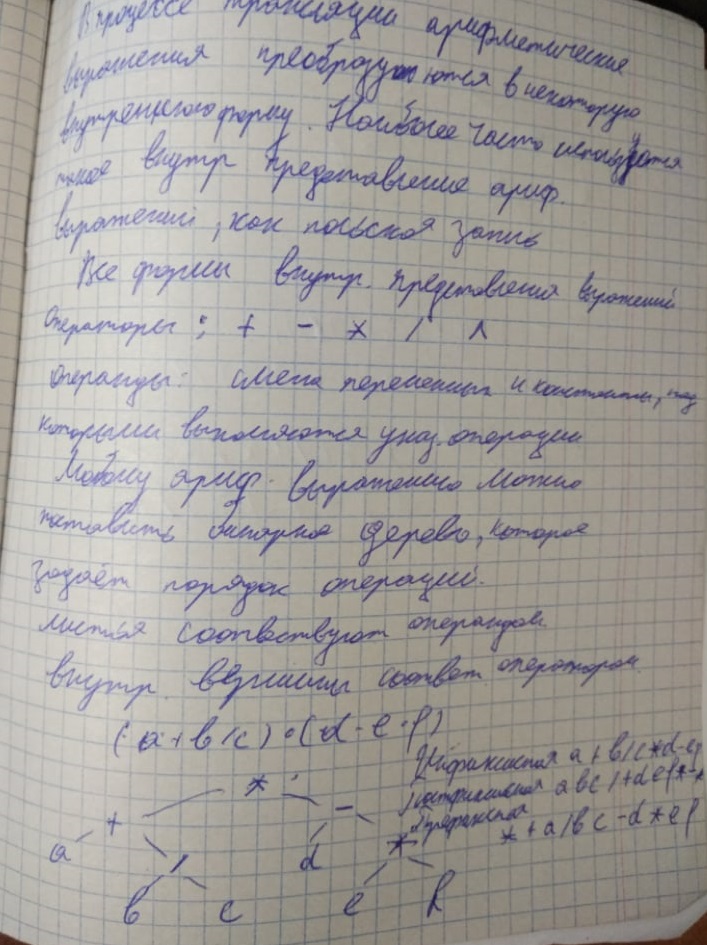 В процессе трансляции арифметические
выражения преобразуются в некоторую
внутреннюю форму. Наиболее часто используется
такое внутр представление ариф.
выражений, как польская запись
Все формы внутр. представления выражений
операторы : + - * / ^
операнды: имена переменных и константы, над
которыми выполняются указ. операции
Любому ариф. выражению можно
поставить бинарное дерево, которое
задаёт порядок операций.
листья соответствуют операндам.
внутр. вершины соответ. операторам.
(a+b/c)*(d-e*f)
Инфиксная a+b/c*d-ef
постфиксная abc/+def*-*
префиксная *+a/bc-d*ef
*
+ -
a / d *
b c e f